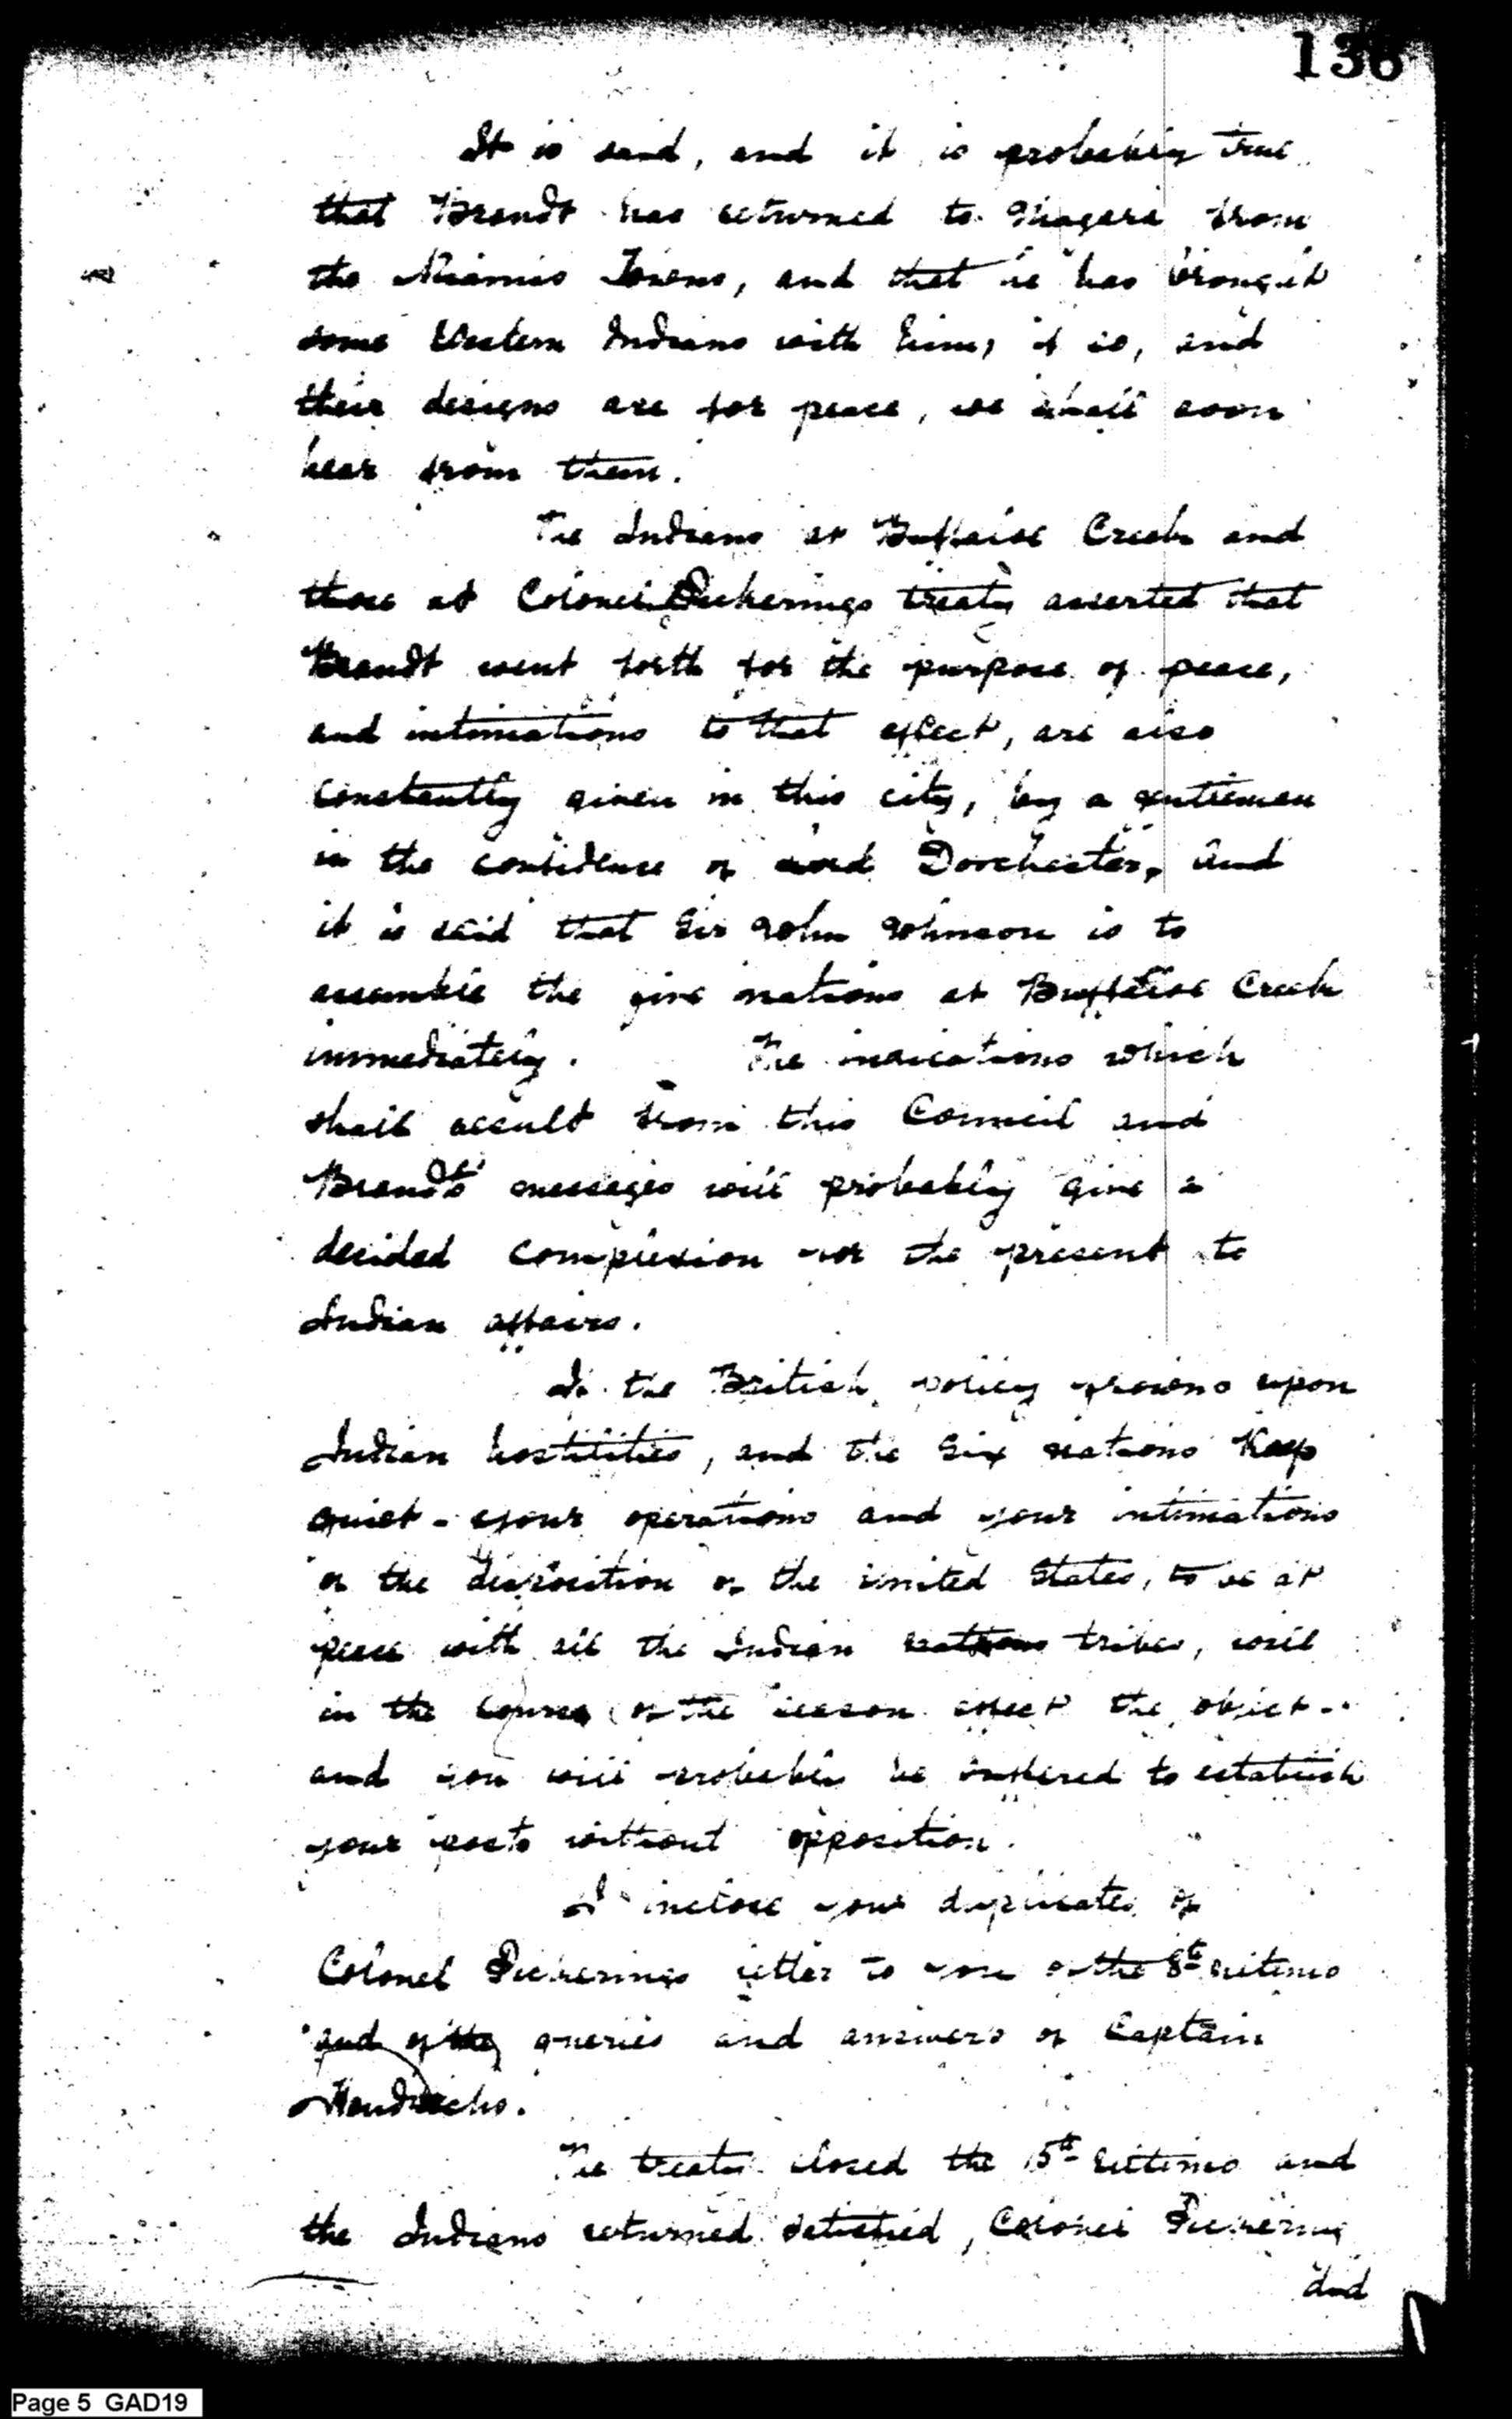 136
It is said, and it is probably true
that Brandt has returned to Niagara from
the Miamis Towns, and that he has brought
some Western Indians with him, if so, and
their designs are for peace, we shall soon
hear from them.
The Indians at Buffaloe Creek and
those at Colonel Pickerings treaty asserted that
Brandt went forth for the purpose of peace,
and intimations to that effect, are also
constantly given in this city, by a gentleman
in the confidence of Lord Dorchester, and
it is said that Sir John Johnson is to
assemble the five nations at Buffaloe Creek
immediately. The indications which
shall result from this Council and
Brandts messages will probably give a
decided complexion for the present to
Indian affairs.
If the British policy frowns upon
Indian hostilities, and the Six nations Keep
quiet - your operations and your intimations
of the disposition of the United States, to be at
peace with all the Indian nations tribes, will
in the course of the season effect the object -
and you will probably be suffered to establish
your posts without opposition.
I inclose your duplicates of
Colonel Pickerings letter to you of the 8th ultimo
and of the queries and answers of Captain
Hendricks.
The treaty closed the 15th ultimo and
the Indians returned satisfied, Colonel Pickering
did
Page 5 GAD19